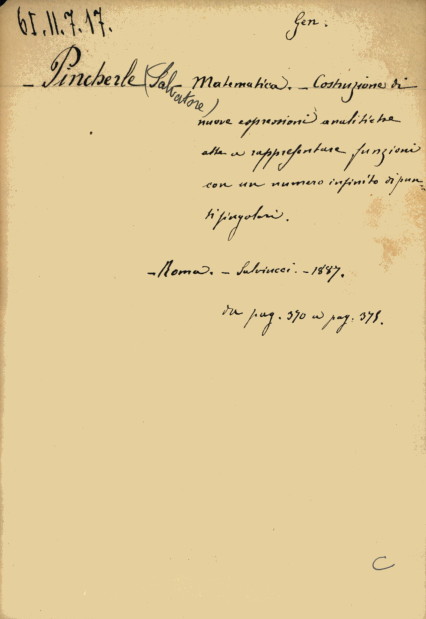 61.II.7.17.
Gen.
– Pincherle (Salvatore) Matematica. – Costruzione di
nuove espressioni analitiche
atte a rappresentare funzioni
con un numero infinito di pun-
ti singolari.
– Roma. – Salviucci. – 1887.
da pag. 370 a pag. 375.
C